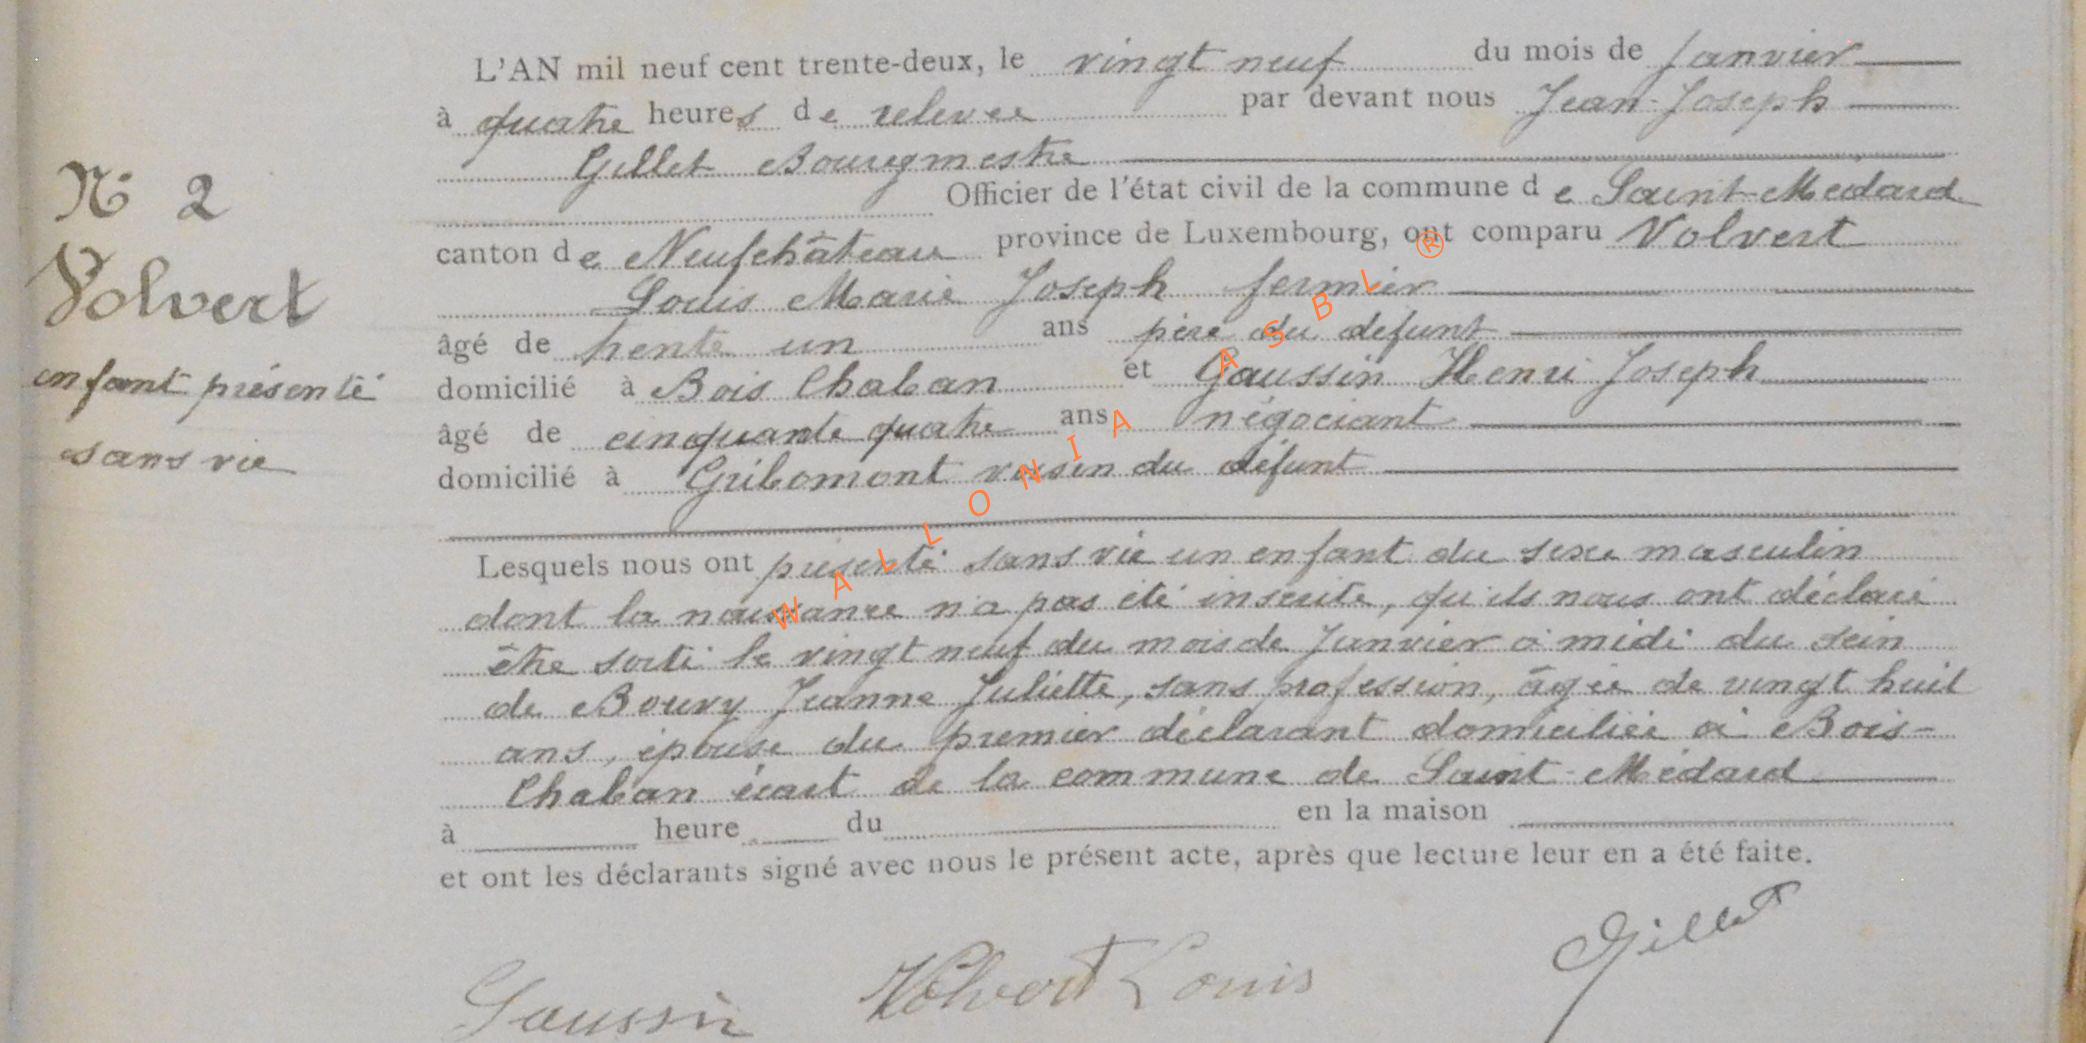 L'AN mil neuf cent trente-deux, le vingt neuf du mois de Janvier
à quatre heures de relevée par devant nous Jean-Joseph
Gillet Bourgmestre
Officier de l'état civil de la commune de Saint-Médard
canton de Neufchâteau province de Luxembourg, ont comparu Volvert
Louis Marie Joseph fermier
âgé de trente un ans père du défunt
domicilié à Bois Chaban et Gaussin Henri Joseph
âgé de cinquante quatre ans négociant
domicilié à Gribomont voisin du défunt
Lesquels nous ont présenté sans vie un enfant du sexe masculin
dont la naissance n'a pas été inscrite, qu'ils nous ont déclaré
être sorti le vingt neuf du mois de Janvier à midi du sein
de Bouvy Jeanne Juliette, sans profession, âgée de vingt huit
ans, épouse du premier déclarant domiciliée à Bois-
Chaban écart de la commune de Saint-Médard
à heure du en la maison
et ont les déclarants signé avec nous le présent acte, après que lecture leur en a été faite.
Gaussin Volvert Louis Gillet
N° 2
Volvert
enfant présenté
sans vie
WALLONIA ASBL ®